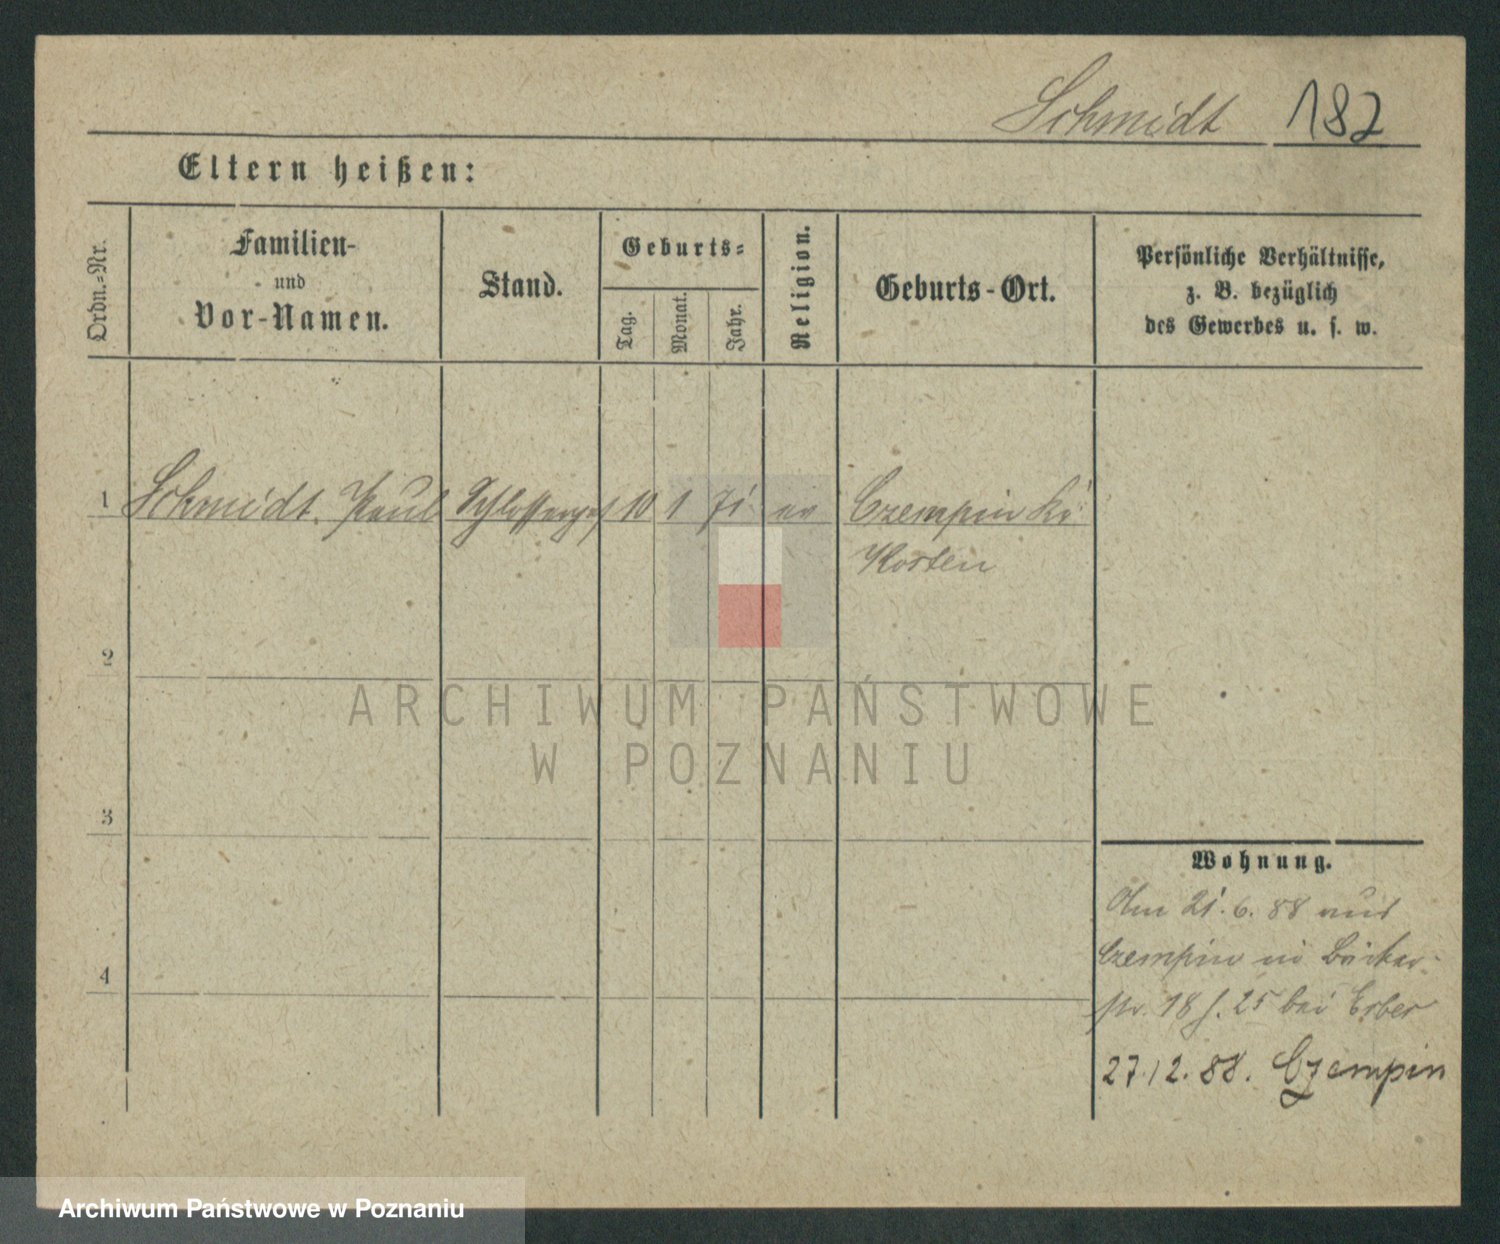 Schmidt 182
Eltern heißen:
Ordn.-Nr.
Familien-
und
Vor-Namen.
Stand.
Geburts-
Tag.
Monat.
Jahr.
Religion.
Geburts-Ort.
Persönliche Verhältnisse,
z. B. bezüglich
des Gewerbes u. s. w.
1 Schmidt Paul Schlosserges 10 1 71 ev Czempin Kr
Kosten
2
3
4
Wohnung.
Am 21.6.88 aus
Czempin in Bäcker-
str. 18 b. 25 bei Erber
27.12.88. Czempin
ARCHIWUM PAŃSTWOWE
W POZNANIU
Archiwum Państwowe w Poznaniu